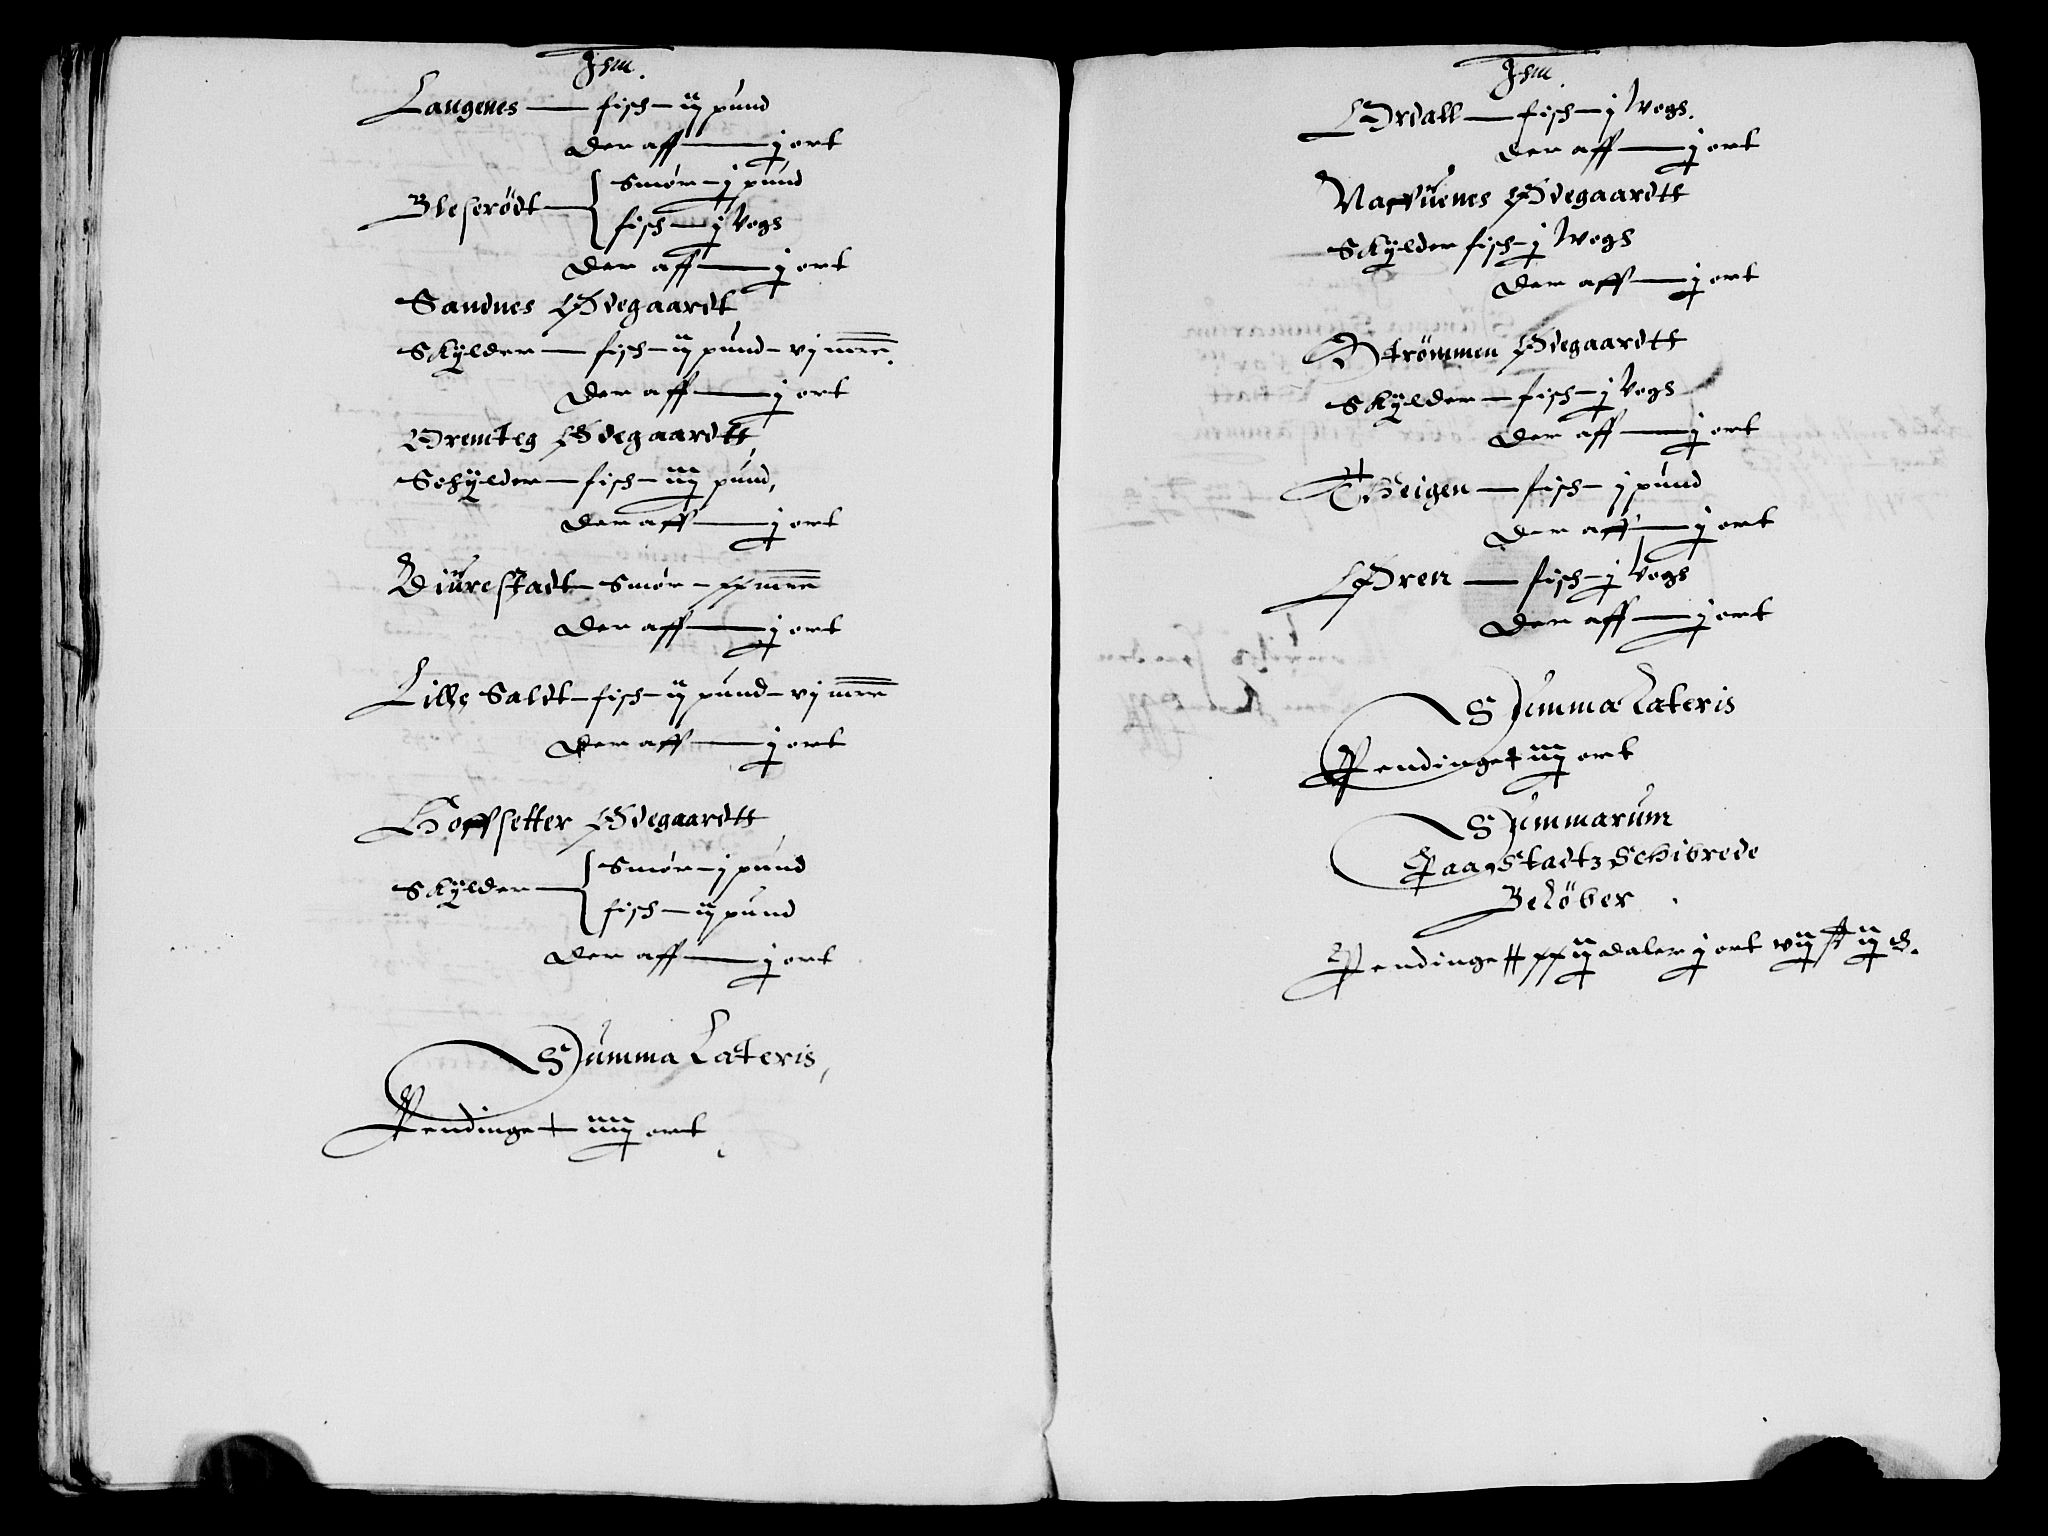 Jtem.
Laugenes — fisch — ij pund
Der aff — j ort
Bleserödt — Smør — j pund
fisch — j Vogs
Der aff — j ort
Sandnes Ødegaardt
Skÿlder — fisch — ij pund — vj mrc.
Der aff — j ort
Ødegaardtt
Schÿlder — fisch — iij pund,
Der aff — j ort
Smør — xx mrc
Der aff — j ort
Lille Saldt — fisch — ij pund — vj mrc
Der aff — j ort
Hoffsetter Ødegaardtt
Skÿlder — Smør — j pund
fisch — ij pund
Der aff — j ort
Summa Lateris,
Pendinge + iiij ort
Jtem.
Ordall — fisch — j Vogs.
Der aff — j ort
Naffuenes Ødegaardtt
Skÿlder fisch — j Wogs
Der aff — j ort
Strömmen Ødegaardtt
Skÿlder — fisch — j Vogs
Der aff — j ort
Theigen — fisch — j pund
Der aff — j ort
Øren — fisch — j Vogs
Der aff — j ort
Summa Lateris
Pendinge + iij ort
Summarum
Paagstadtz Schibrede
Belöber
Pendinge xxij daler j ort vij ß ij ₰.